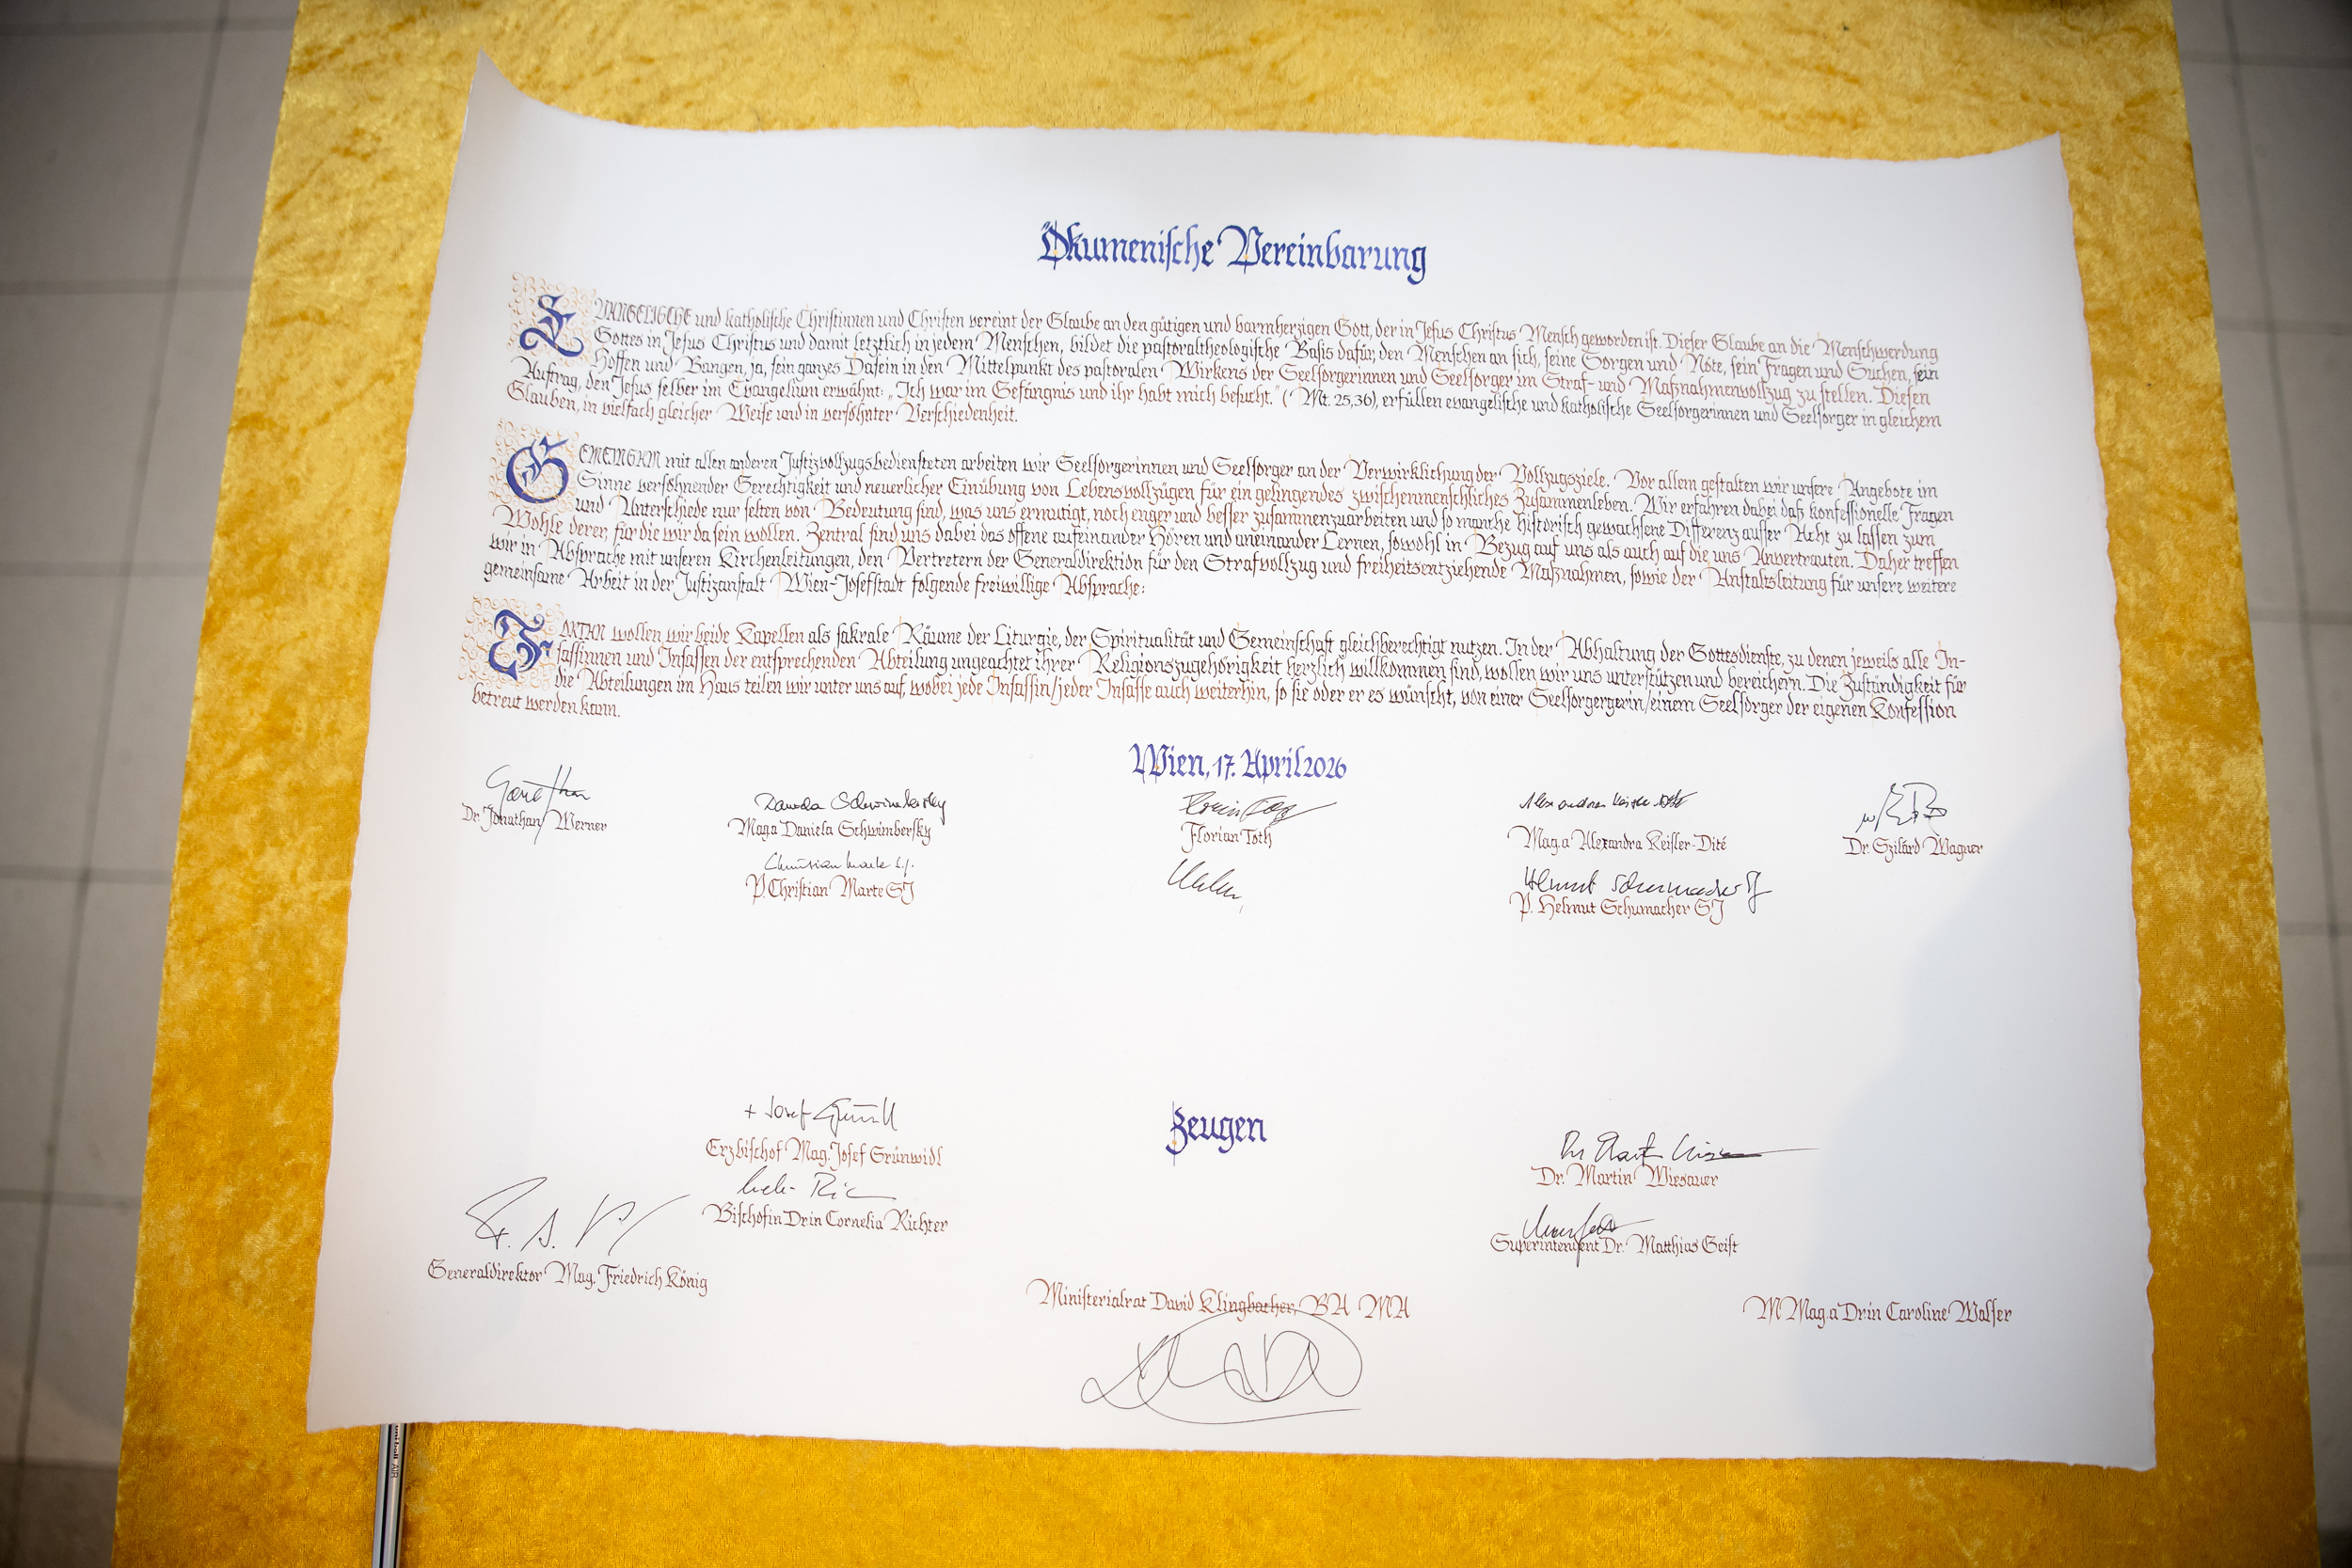 Ökumenische Vereinbarung
EVANGELISCHE und katholische Christinnen und Christen vereint der Glaube an den gütigen und barmherzigen Gott, der in Jesus Christus Mensch geworden ist. Dieser Glaube an die Menschwerdung
Gottes in Jesus Christus und damit letztlich in jedem Menschen, bildet die pastoraltheologische Basis dafür, den Menschen an sich, seine Sorgen und Nöte, sein Fragen und Suchen, sein
Hoffen und Bangen, ja, sein ganzes Dasein in den Mittelpunkt des pastoralen Wirkens der Seelsorgerinnen und Seelsorger im Straf- und Maßnahmenvollzug zu stellen. Diesen
Auftrag, den Jesus selber im Evangelium erwähnt: „Ich war im Gefängnis und ihr habt mich besucht." (Mt. 25,36), erfüllen evangelische und katholische Seelsorgerinnen und Seelsorger in gleichem
Glauben, in vielfach gleicher Weise und in versöhnter Verschiedenheit.
GEMEINSAM mit allen anderen Justizvollzugsbediensteten arbeiten wir Seelsorgerinnen und Seelsorger an der Verwirklichung der Vollzugsziele. Vor allem gestalten wir unsere Angebote im
Sinne versöhnender Gerechtigkeit und neuerlicher Einübung von Lebensvollzügen für ein gelingendes zwischenmenschliches Zusammenleben. Wir erfahren dabei daß konfessionelle Fragen
und Unterschiede nur selten von Bedeutung sind, was uns ermutigt, noch enger und besser zusammenzuarbeiten und so manche historisch gewachsene Differenz ausser Acht zu lassen zum
Wohle derer, für die wir da sein wollen. Zentral sind uns dabei das offene aufeinander Hören und aneinander Lernen, sowohl in Bezug auf uns als auch auf die uns Anvertrauten. Daher treffen
wir in Absprache mit unseren Kirchenleitungen, den Vertretern der Generaldirektion für den Strafvollzug und freiheitsentziehende Maßnahmen, sowie der Anstaltsleitung für unsere weitere
gemeinsame Arbeit in der Justizanstalt Wien-Josefstadt folgende freiwillige Absprache:
FORTAN wollen wir beide Kapellen als sakrale Räume der Liturgie, der Spiritualität und Gemeinschaft gleichberechtigt nutzen. In der Abhaltung der Gottesdienste, zu denen jeweils alle In-
sassinnen und Insassen der entsprechenden Abteilung ungeachtet ihrer Religionszugehörigkeit herzlich willkommen sind, wollen wir uns unterstützen und bereichern. Die Zuständigkeit für
die Abteilungen im Haus teilen wir unter uns auf, wobei jede Insassin/jeder Insasse auch weiterhin, so sie oder er es wünscht, von einer Seelsorgergerin/einem Seelsorger der eigenen Konfession
betreut werden kann.
Wien, 17. April 2026
Dr. Jonathan Werner
Mag.a Daniela Schwimbersky
Florian Toth
Mag.a Alexandra Keisler-Dité
Dr. Szilárd Wagner
Christian Marte S.J.
P. Christian Marte SJ
Helmut Schumacher SJ
P. Helmut Schumacher SJ
Zeugen
+ Josef Grünwidl
Erzbischof Mag. Josef Grünwidl
Dr. Martin Wiesauer
Bischöfin Drin Cornelia Richter
Superintendent Dr. Matthias Geist
Generaldirektor Mag. Friedrich König
Ministerialrat David Klingbacher, BA MA
MMag.a Drin Caroline Walser
uni-ball AIR